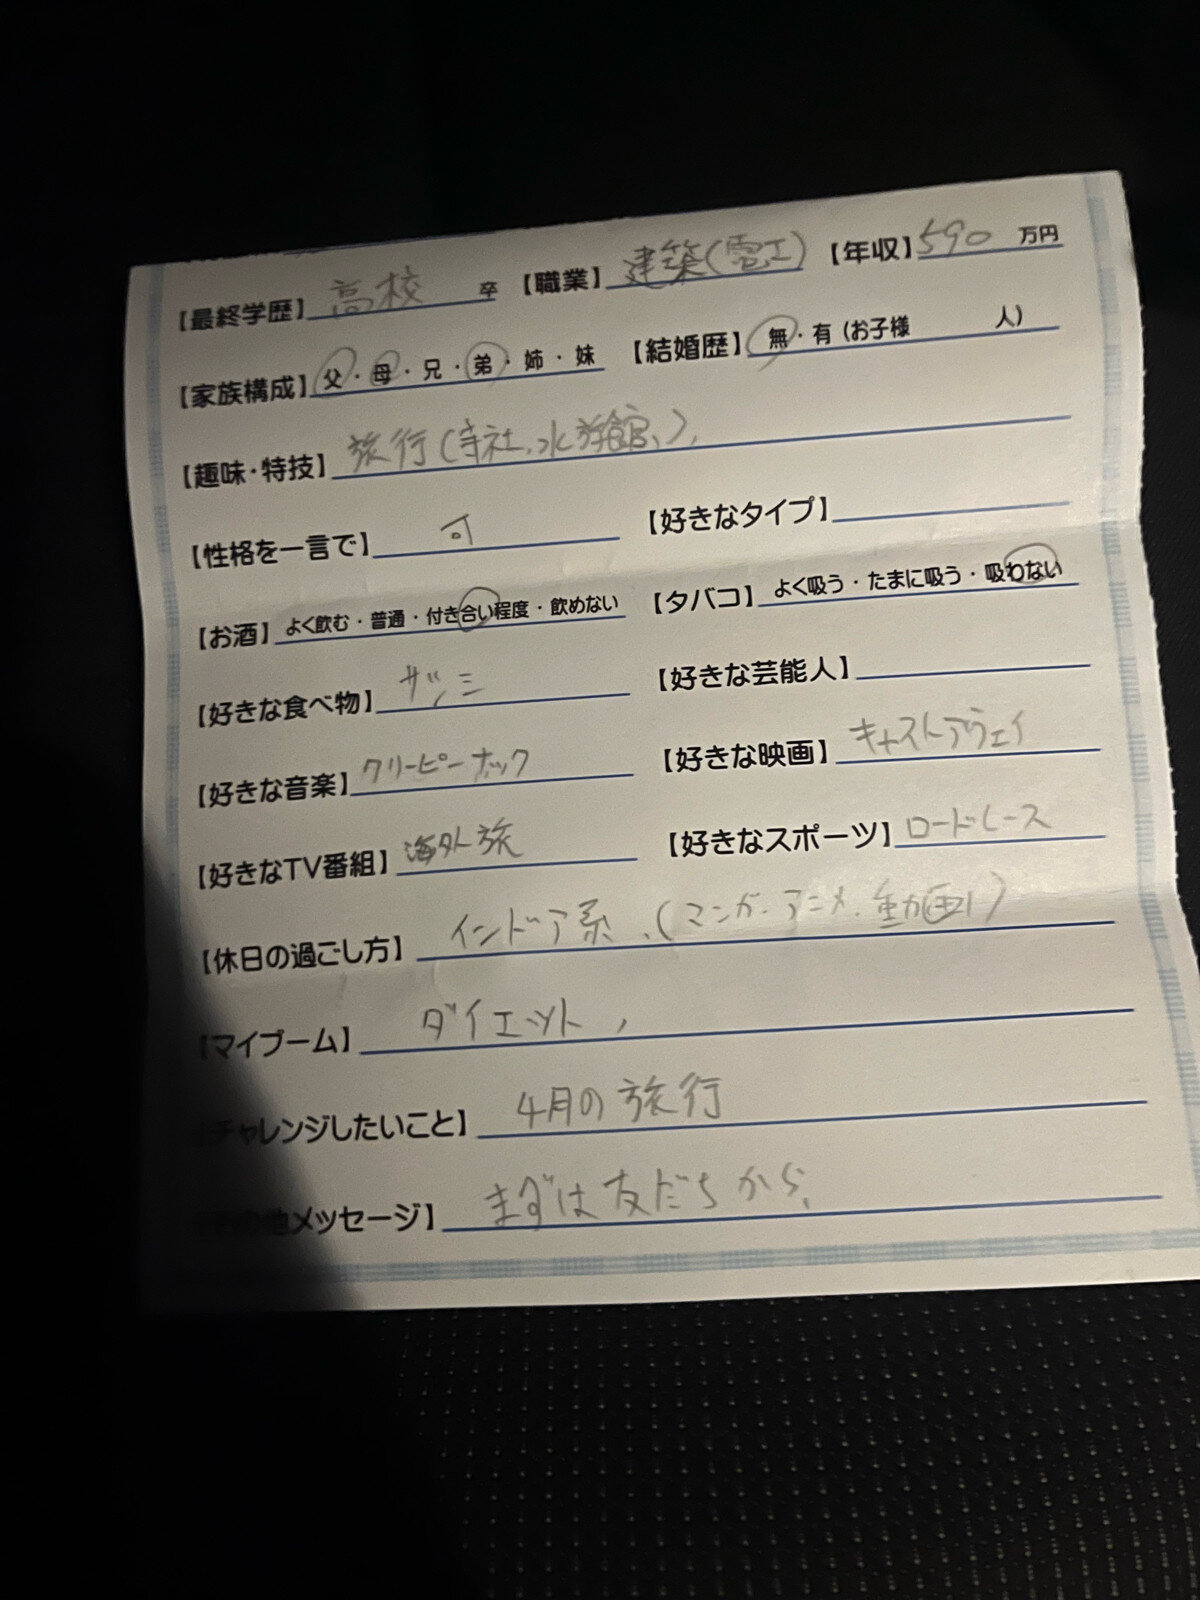 【最終学歴】高校 卒 【職業】建築(電工) 【年収】590 万円
【家族構成】父・母・兄・弟・姉・妹 【結婚歴】無・有(お子様 人)
【趣味・特技】旅行(寺社、水族館、)、
【性格を一言で】可 【好きなタイプ】
【お酒】よく飲む・普通・付き合い程度・飲めない 【タバコ】よく吸う・たまに吸う・吸わない
【好きな食べ物】サンミ 【好きな芸能人】
【好きな音楽】クリーピーナッツ 【好きな映画】キャストアウェイ
【好きなTV番組】海外旅 【好きなスポーツ】ロードレース
【休日の過ごし方】インドア系、(マンガ、アニメ、動画)
【マイブーム】ダイエット、
【チャレンジしたいこと】4月の旅行
の他メッセージ】まずは友だちから、